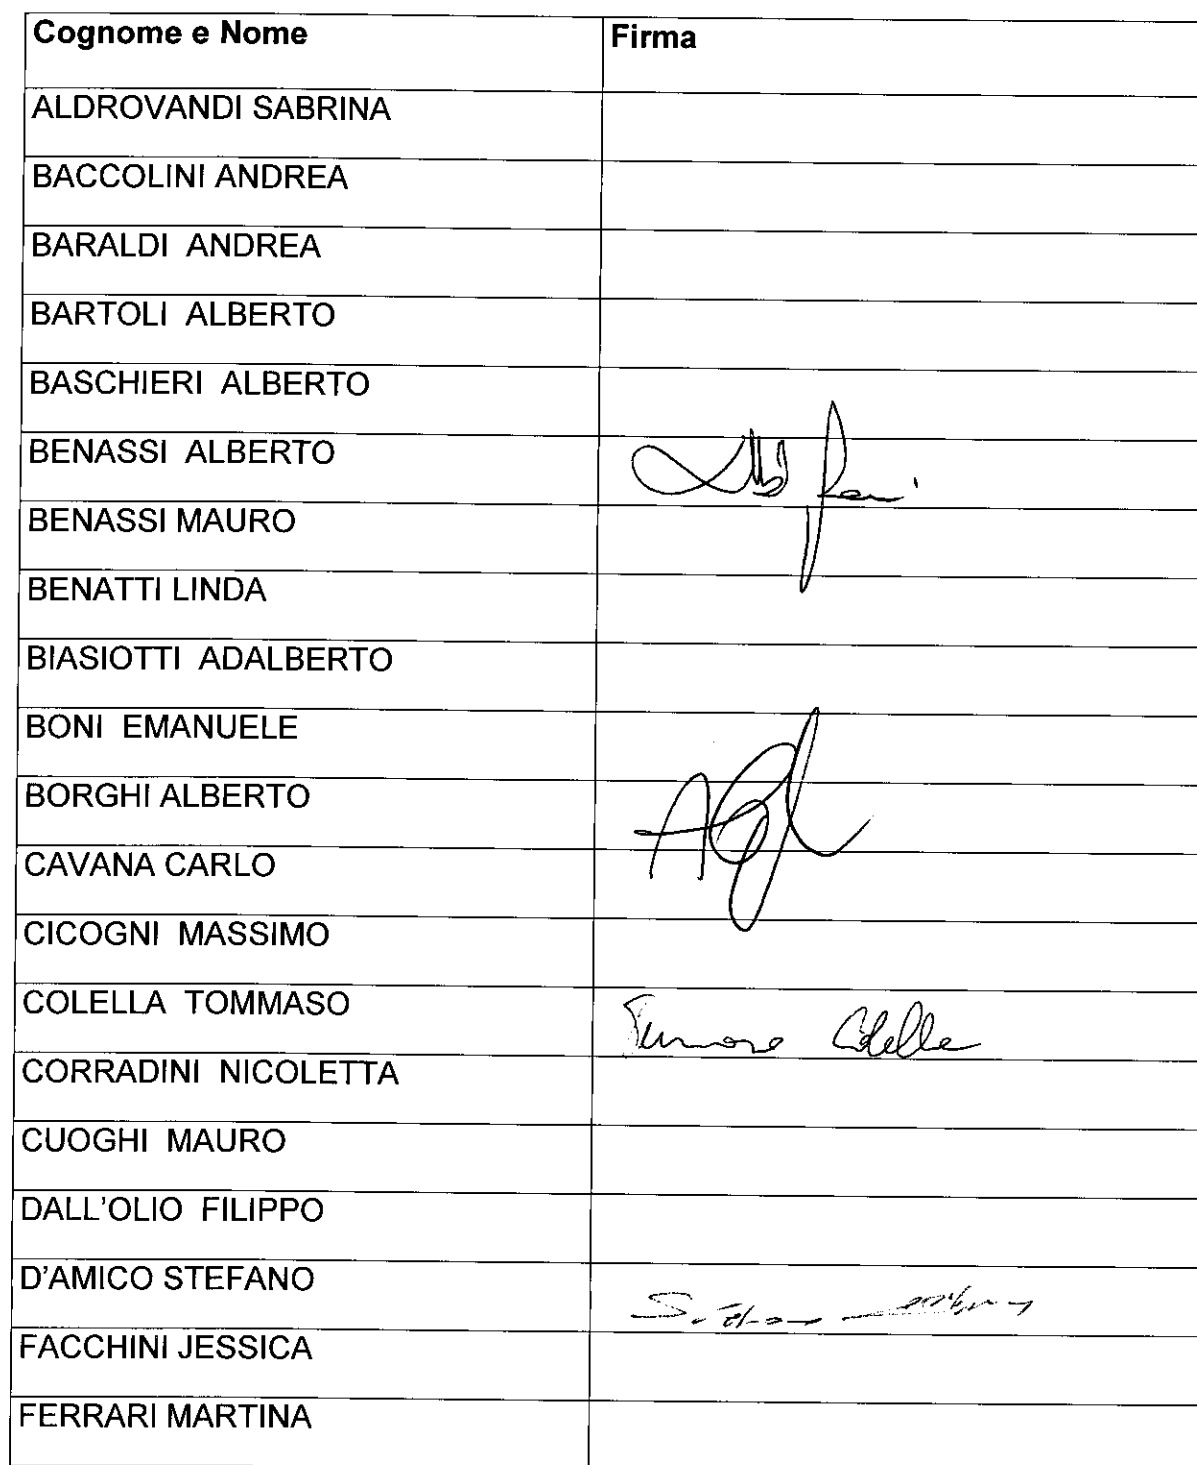 Cognome e Nome Firma
ALDROVANDI SABRINA
BACCOLINI ANDREA
BARALDI ANDREA
BARTOLI ALBERTO
BASCHIERI ALBERTO
BENASSI ALBERTO
BENASSI MAURO
BENATTI LINDA
BIASIOTTI ADALBERTO
BONI EMANUELE
BORGHI ALBERTO
CAVANA CARLO
CICOGNI MASSIMO
COLELLA TOMMASO Tommaso Colella
CORRADINI NICOLETTA
CUOGHI MAURO
DALL'OLIO FILIPPO
D'AMICO STEFANO
FACCHINI JESSICA
FERRARI MARTINA